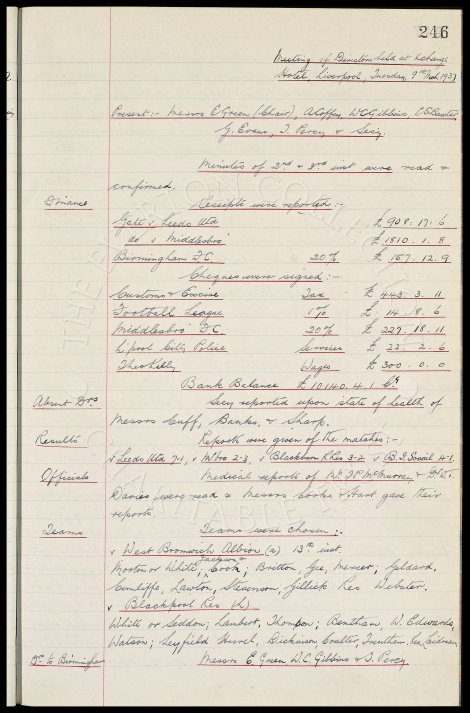 246
Meeting of Directors held at Exchange
Hotel, Liverpool, Tuesday, 9th Mch 1937
Present :- Messrs E. Green (Chair), A. Coffey, W.C. Gibbins, R.E. Baxter,
G. Evans, T. Percy & Secy.
Minutes of 2nd & 3rd inst were read &
confirmed.
Finance Receipts were reported :-
Gate v Leeds Utd £ 908. 17. 6
do v Middlesbro' £ 1810. 1. 8
Birmingham F.C. 20% £ 157. 12. 9
Cheques were signed :-
Customs & Excise Tax £ 443. 3. 11
Football League 1% £ 14. 18. 6
Middlesbro' F.C. 20% £ 227. 18. 11
L'pool City Police Services £ 22. 2. 6
Theo Kelly Wages £ 300. 0. 0
Bank Balance £ 10140. 4. 1 Cr
Absent Drs Secy reported upon state of health of
Messrs Cuff, Banks, & Sharp.
Results Reports were given of the matches :-
v Leeds Utd 7-1, v M'bro 2-3, v Blackburn R Res 3-2, v B.I. Social 4-1
Officials Medical reports of Mr J.P. McMurray & D.W.
Davies were read & Messrs Cooke & Hart gave their
reports.
Teams Teams were chosen :-
v West Bromwich Albion (a) 13th inst.
Jackson &
Morton or White; Cook; Britton, Gee, Mercer; Geldard,
Cunliffe, Lawton, Stevenson, Gillick Res Webster.
v Blackpool Res (h)
White or Seddon; Lambert, Thompson; Bentham, W. Edwards,
Watson; Leyfield, Hurel, Dickinson, Coulter, Trentham, Res Laidman.
Drs to Birmingham Messrs E. Green W.C. Gibbins & T. Percy
THE EVERTON COLLECTION
CHARITABLE